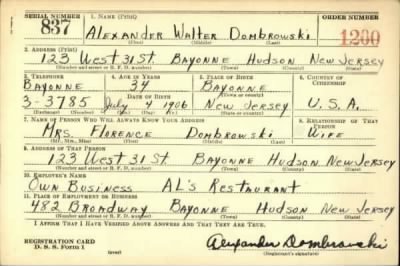 SERIAL NUMBER 1. NAME (Print) ORDER NUMBER
837 ALEXANDER WALTER DOMBROWSKI 1200
(First) (Middle) (Last)
2. ADDRESS (Print)
123 WEST 31 ST. BAYONNE HUDSON NEW JERSEY
(Number and street or R. F. D. number) (Town) (County) (State)
3. TELEPHONE 4. AGE IN YEARS 5. PLACE OF BIRTH 6. COUNTRY OF CITIZENSHIP
BAYONNE 34 BAYONNE
DATE OF BIRTH (Town or county)
3-3785 JULY 4 1906 NEW JERSEY U.S.A.
(Exchange) (Number) (Mo.) (Day) (Yr.) (State or country)
7. NAME OF PERSON WHO WILL ALWAYS KNOW YOUR ADDRESS 8. RELATIONSHIP OF THAT PERSON
MRS. FLORENCE DOMBROWSKI WIFE
(Mr., Mrs., Miss) (First) (Middle) (Last)
9. ADDRESS OF THAT PERSON
123 WEST 31 ST. BAYONNE HUDSON NEW JERSEY
(Number and street or R. F. D. number) (Town) (County) (State)
10. EMPLOYER'S NAME
OWN BUSINESS AL'S RESTAURANT
11. PLACE OF EMPLOYMENT OR BUSINESS
482 BROADWAY BAYONNE HUDSON NEW JERSEY
(Number and street or R. F. D. number) (Town) (County) (State)
I AFFIRM THAT I HAVE VERIFIED ABOVE ANSWERS AND THAT THEY ARE TRUE.
REGISTRATION CARD
D. S. S. Form 1 (over) Alexander Dombrowski
(Registrant's signature)